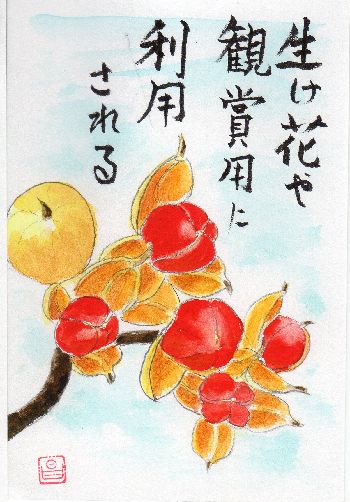 生け花や
観賞用に
利用
される
昌